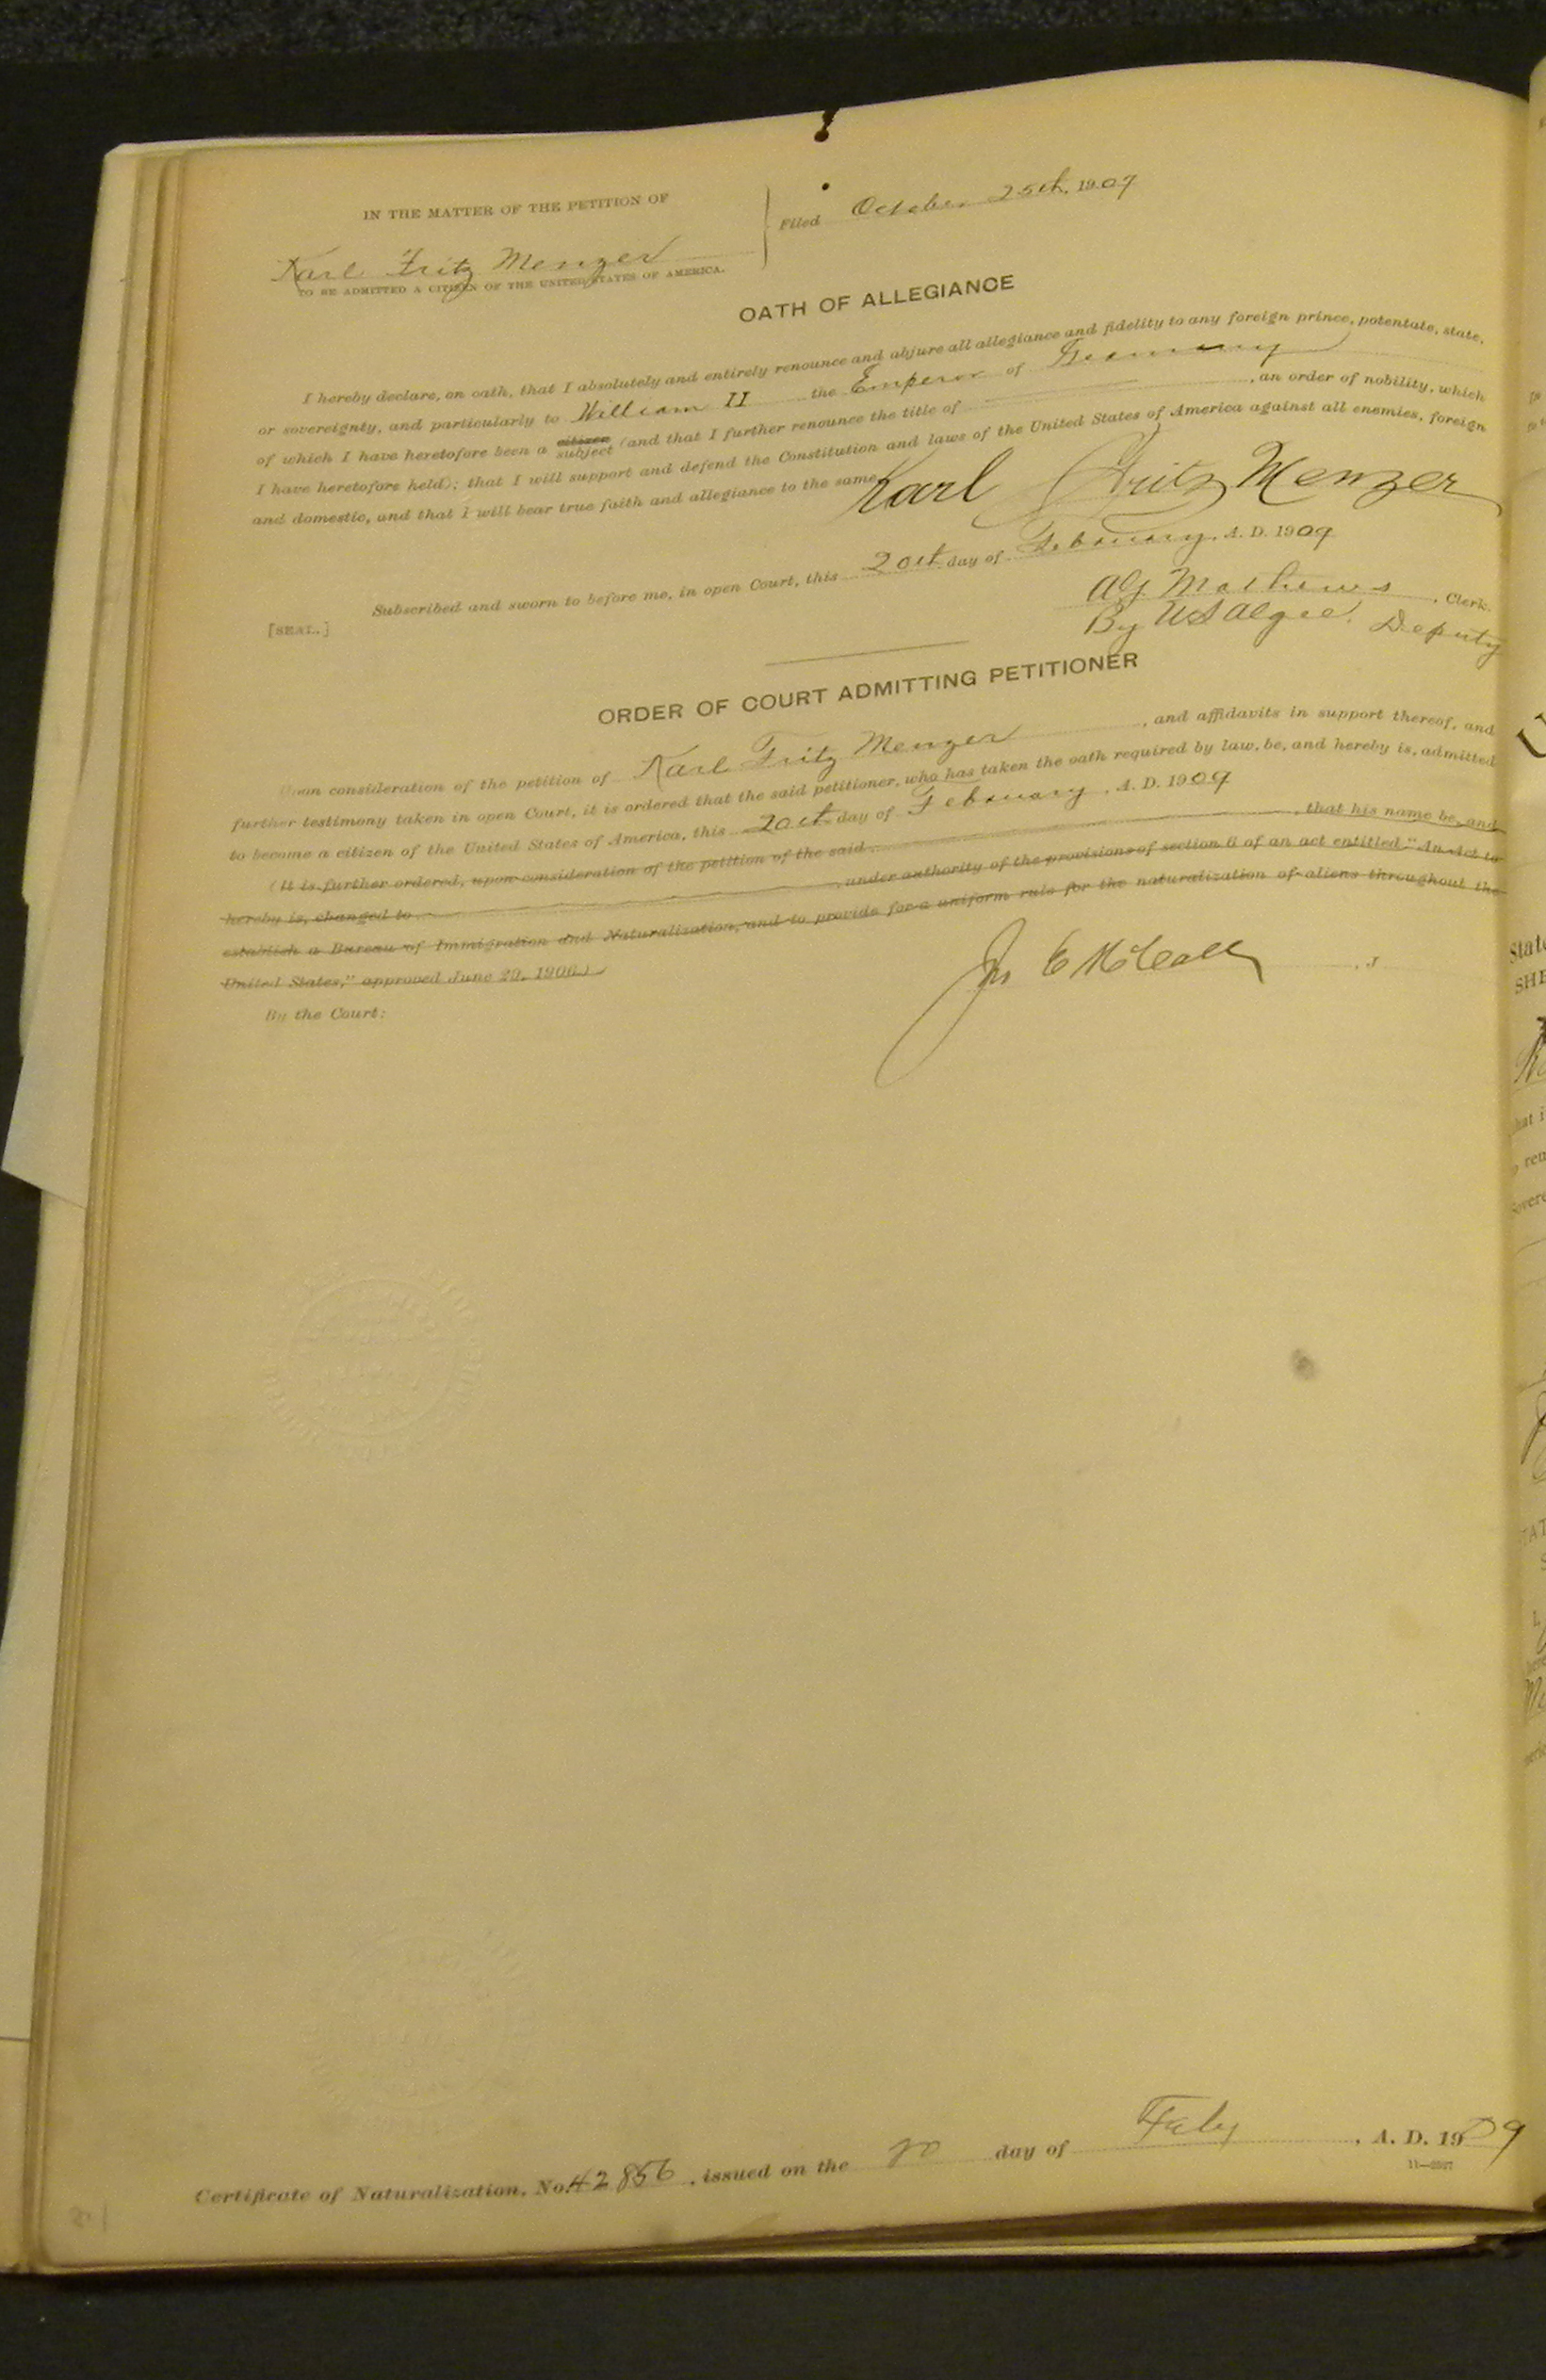 IN THE MATTER OF THE PETITION OF
Karl Fritz Menzer
TO BE ADMITTED A CITIZEN OF THE UNITED STATES OF AMERICA.
Filed October 25th, 1907
OATH OF ALLEGIANCE
I hereby declare, on oath, that I absolutely and entirely renounce and abjure all allegiance and fidelity to any foreign prince, potentate, state,
or sovereignty, and particularly to William II the Emperor of Germany
of which I have heretofore been a citizen subject (and that I further renounce the title of , an order of nobility, which
I have heretofore held); that I will support and defend the Constitution and laws of the United States of America against all enemies, foreign
and domestic, and that I will bear true faith and allegiance to the same.
Karl Fritz Menzer
Subscribed and sworn to before me, in open Court, this 20th day of February, A. D. 1909
[SEAL.]
Mathews, Clerk.
By Algee, Deputy
ORDER OF COURT ADMITTING PETITIONER
Upon consideration of the petition of Karl Fritz Menzer, and affidavits in support thereof, and
further testimony taken in open Court, it is ordered that the said petitioner, who has taken the oath required by law, be, and hereby is, admitted
to become a citizen of the United States of America, this 20th day of February, A. D. 1909
(It is further ordered, upon consideration of the petition of the said , that his name be, and
hereby is, changed to , under authority of the provisions of section 6 of an act entitled "An Act to
establish a Bureau of Immigration and Naturalization, and to provide for a uniform rule for the naturalization of aliens throughout the
United States," approved June 29, 1906.)
By the Court:
Jno E McCall , J
Certificate of Naturalization, No. 42856, issued on the 20 day of Feby, A. D. 1909